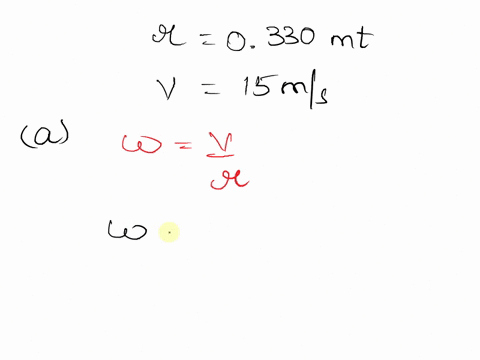 r = 0.330 mt
v = 15 m/s
(a) ω = v/r
ω